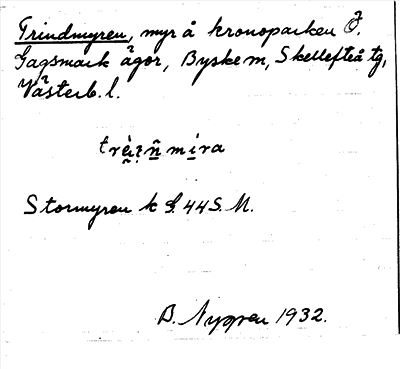 Trindmyren, myr å kronoparken Ö.
Gagsmark ägor, Byske sn, Skellefteå tg,
Västerb. l.
Stormyren k f. 44 S. M.
B. Nygren 1932.